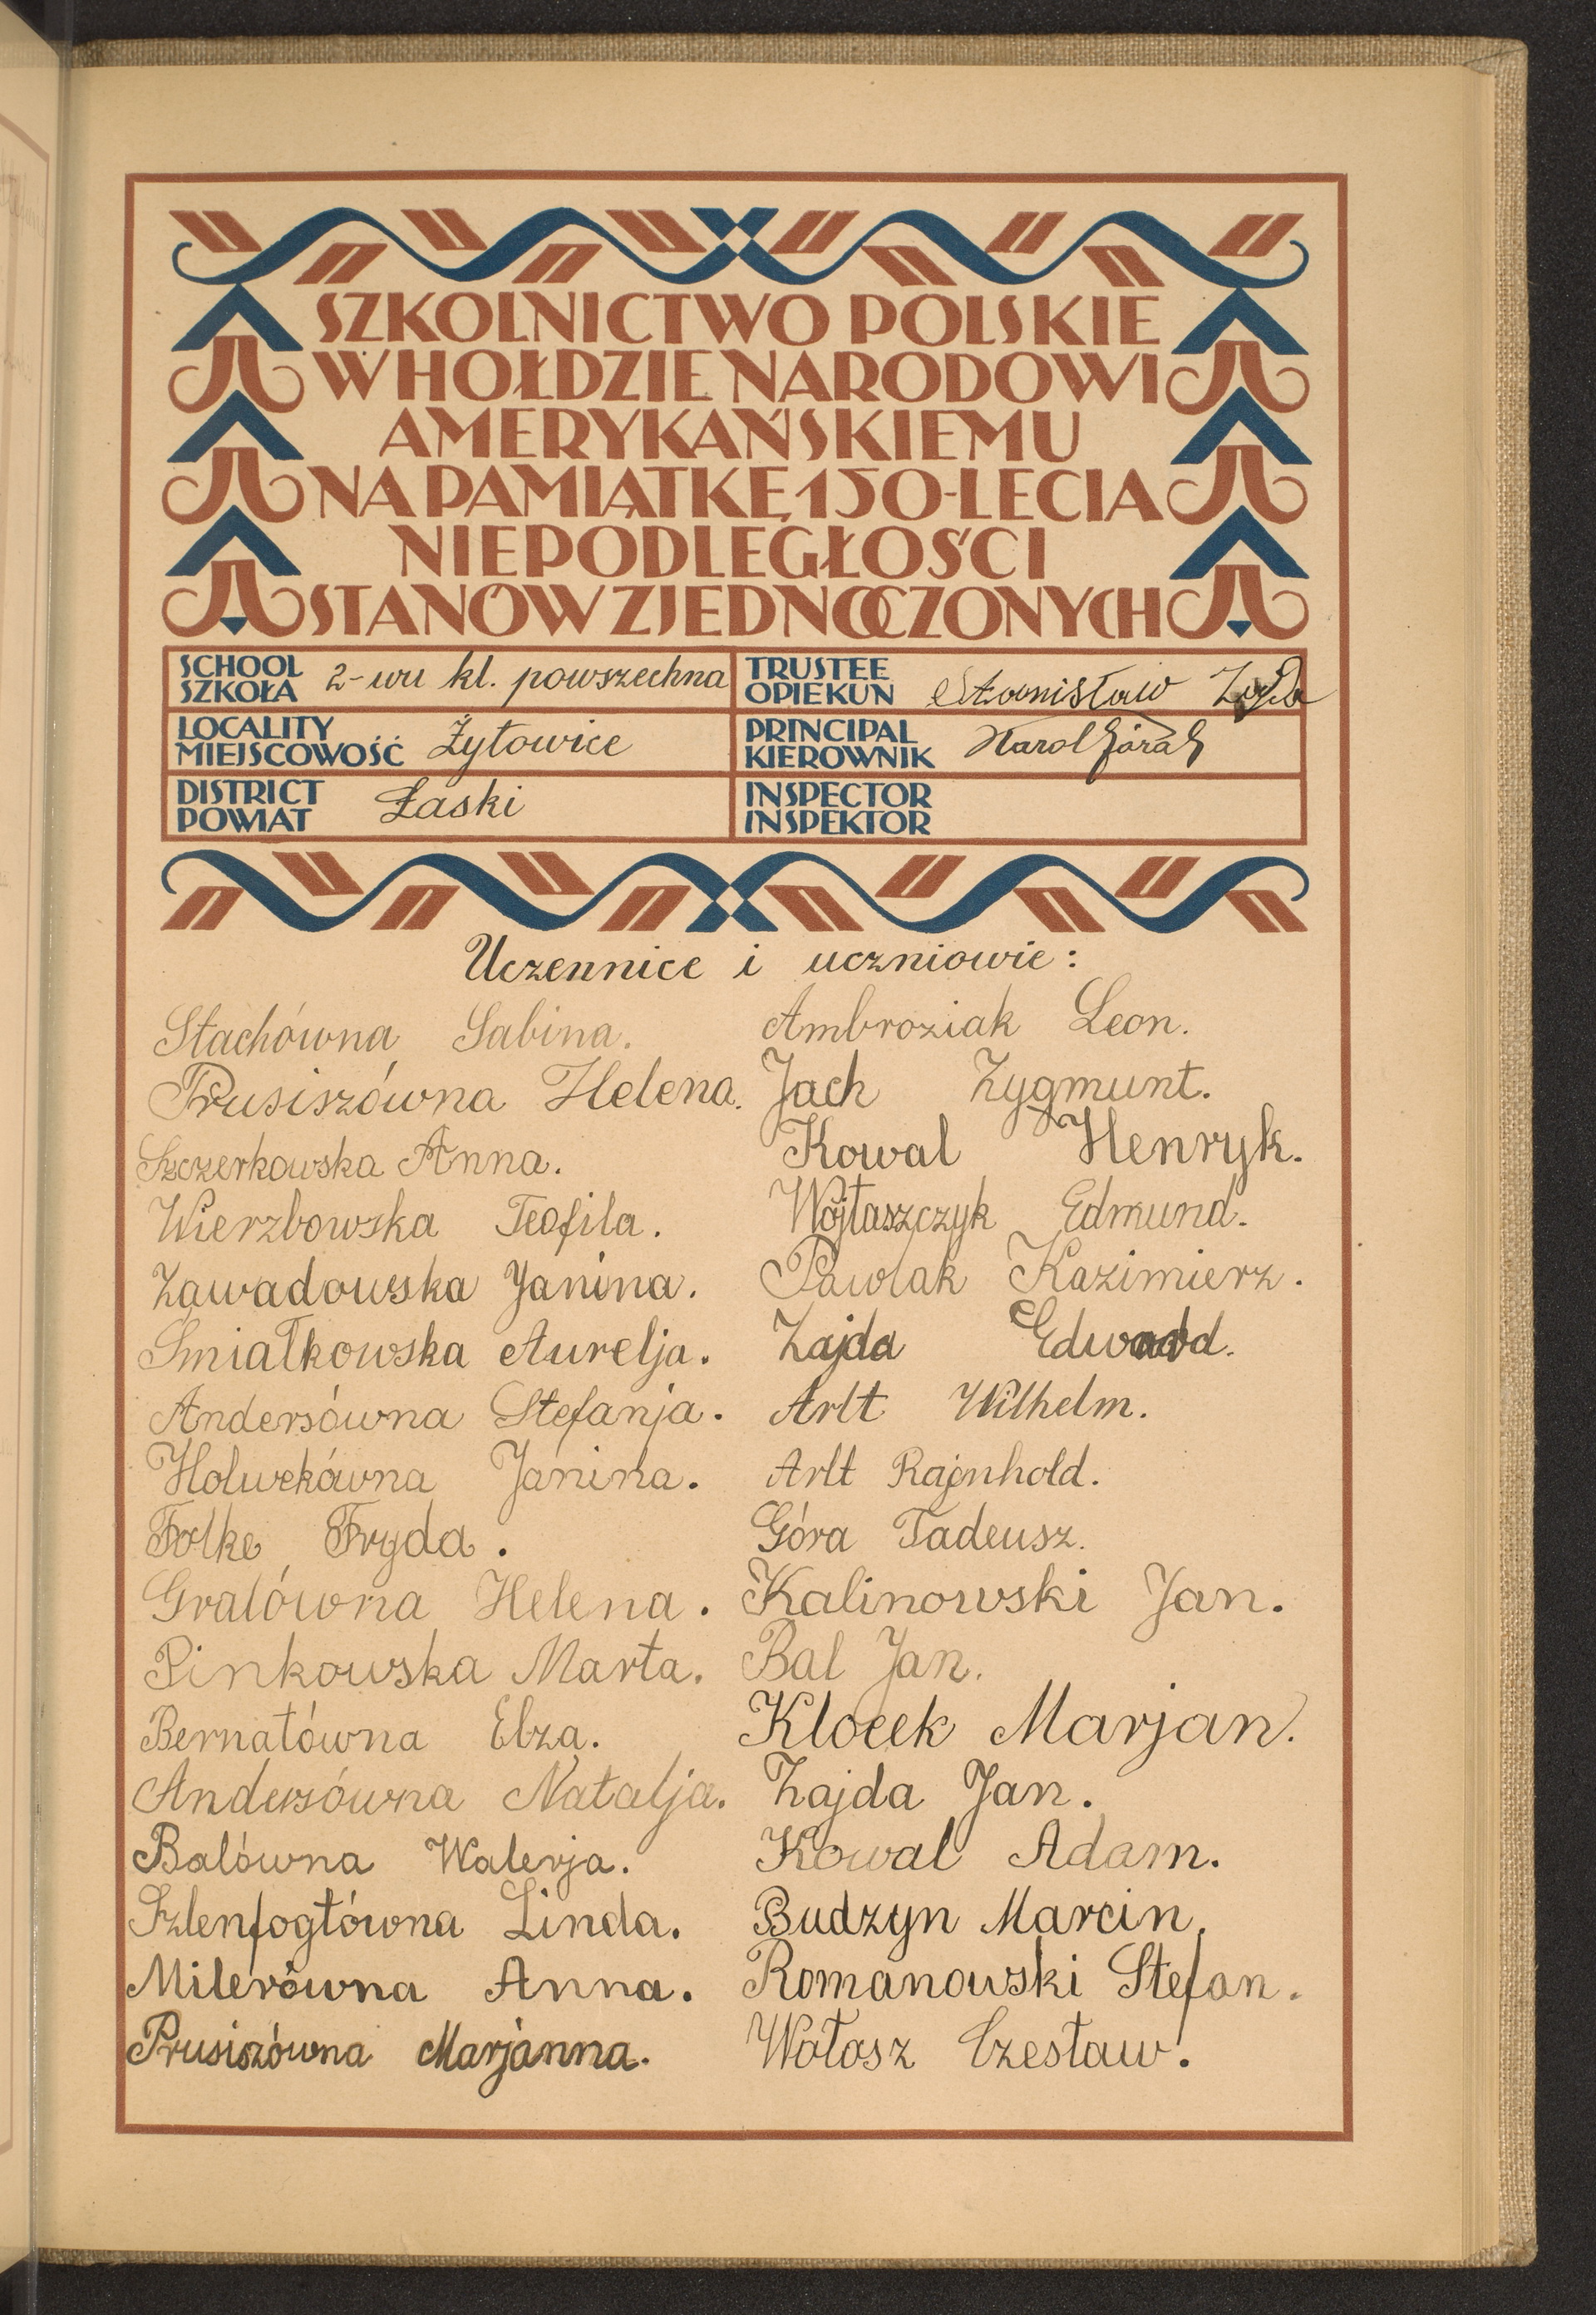 SZKOLNICTWO POLSKIE
W HOŁDZIE NARODOWI
AMERYKAŃSKIEMU
NA PAMIĄTKĘ 150-LECIA
NIEPODLEGŁOŚCI
STANÓW ZJEDNOCZONYCH
SCHOOL
SZKOŁA 2-wu kl. powszechna
TRUSTEE
OPIEKUN Stanisław
LOCALITY
MIEJSCOWOŚĆ Żytowice
PRINCIPAL
KIEROWNIK Karol Góral
DISTRICT
POWIAT Łaski
INSPECTOR
INSPEKTOR
Uczennice i uczniowie:
Stachówna Sabina.
Prusiszówna Helena.
Szczerkowska Anna.
Wierzbowska Teofila.
Zawadowska Janina.
Śmiałkowska Aurelja.
Andersówna Stefanja.
Holwekówna Janina.
Folke Fryda.
Gralówna Helena.
Pinkowska Marta.
Bernatówna Elza.
Andersówna Natalja.
Balówna Walerja.
Szlenfogtówna Linda.
Milerówna Anna.
Prusiszówna Marjanna.
Ambroziak Leon.
Jach Zygmunt.
Kowal Henryk.
Wojtaszczyk Edmund.
Pawlak Kazimierz.
Zajda Edward.
Arlt Wilhelm.
Arlt Rajnhold.
Góra Tadeusz.
Kalinowski Jan.
Bal Jan.
Klocek Marjan.
Zajda Jan.
Kowal Adam.
Budzyn Marcin.
Romanowski Stefan.
Wołosz Czesław.